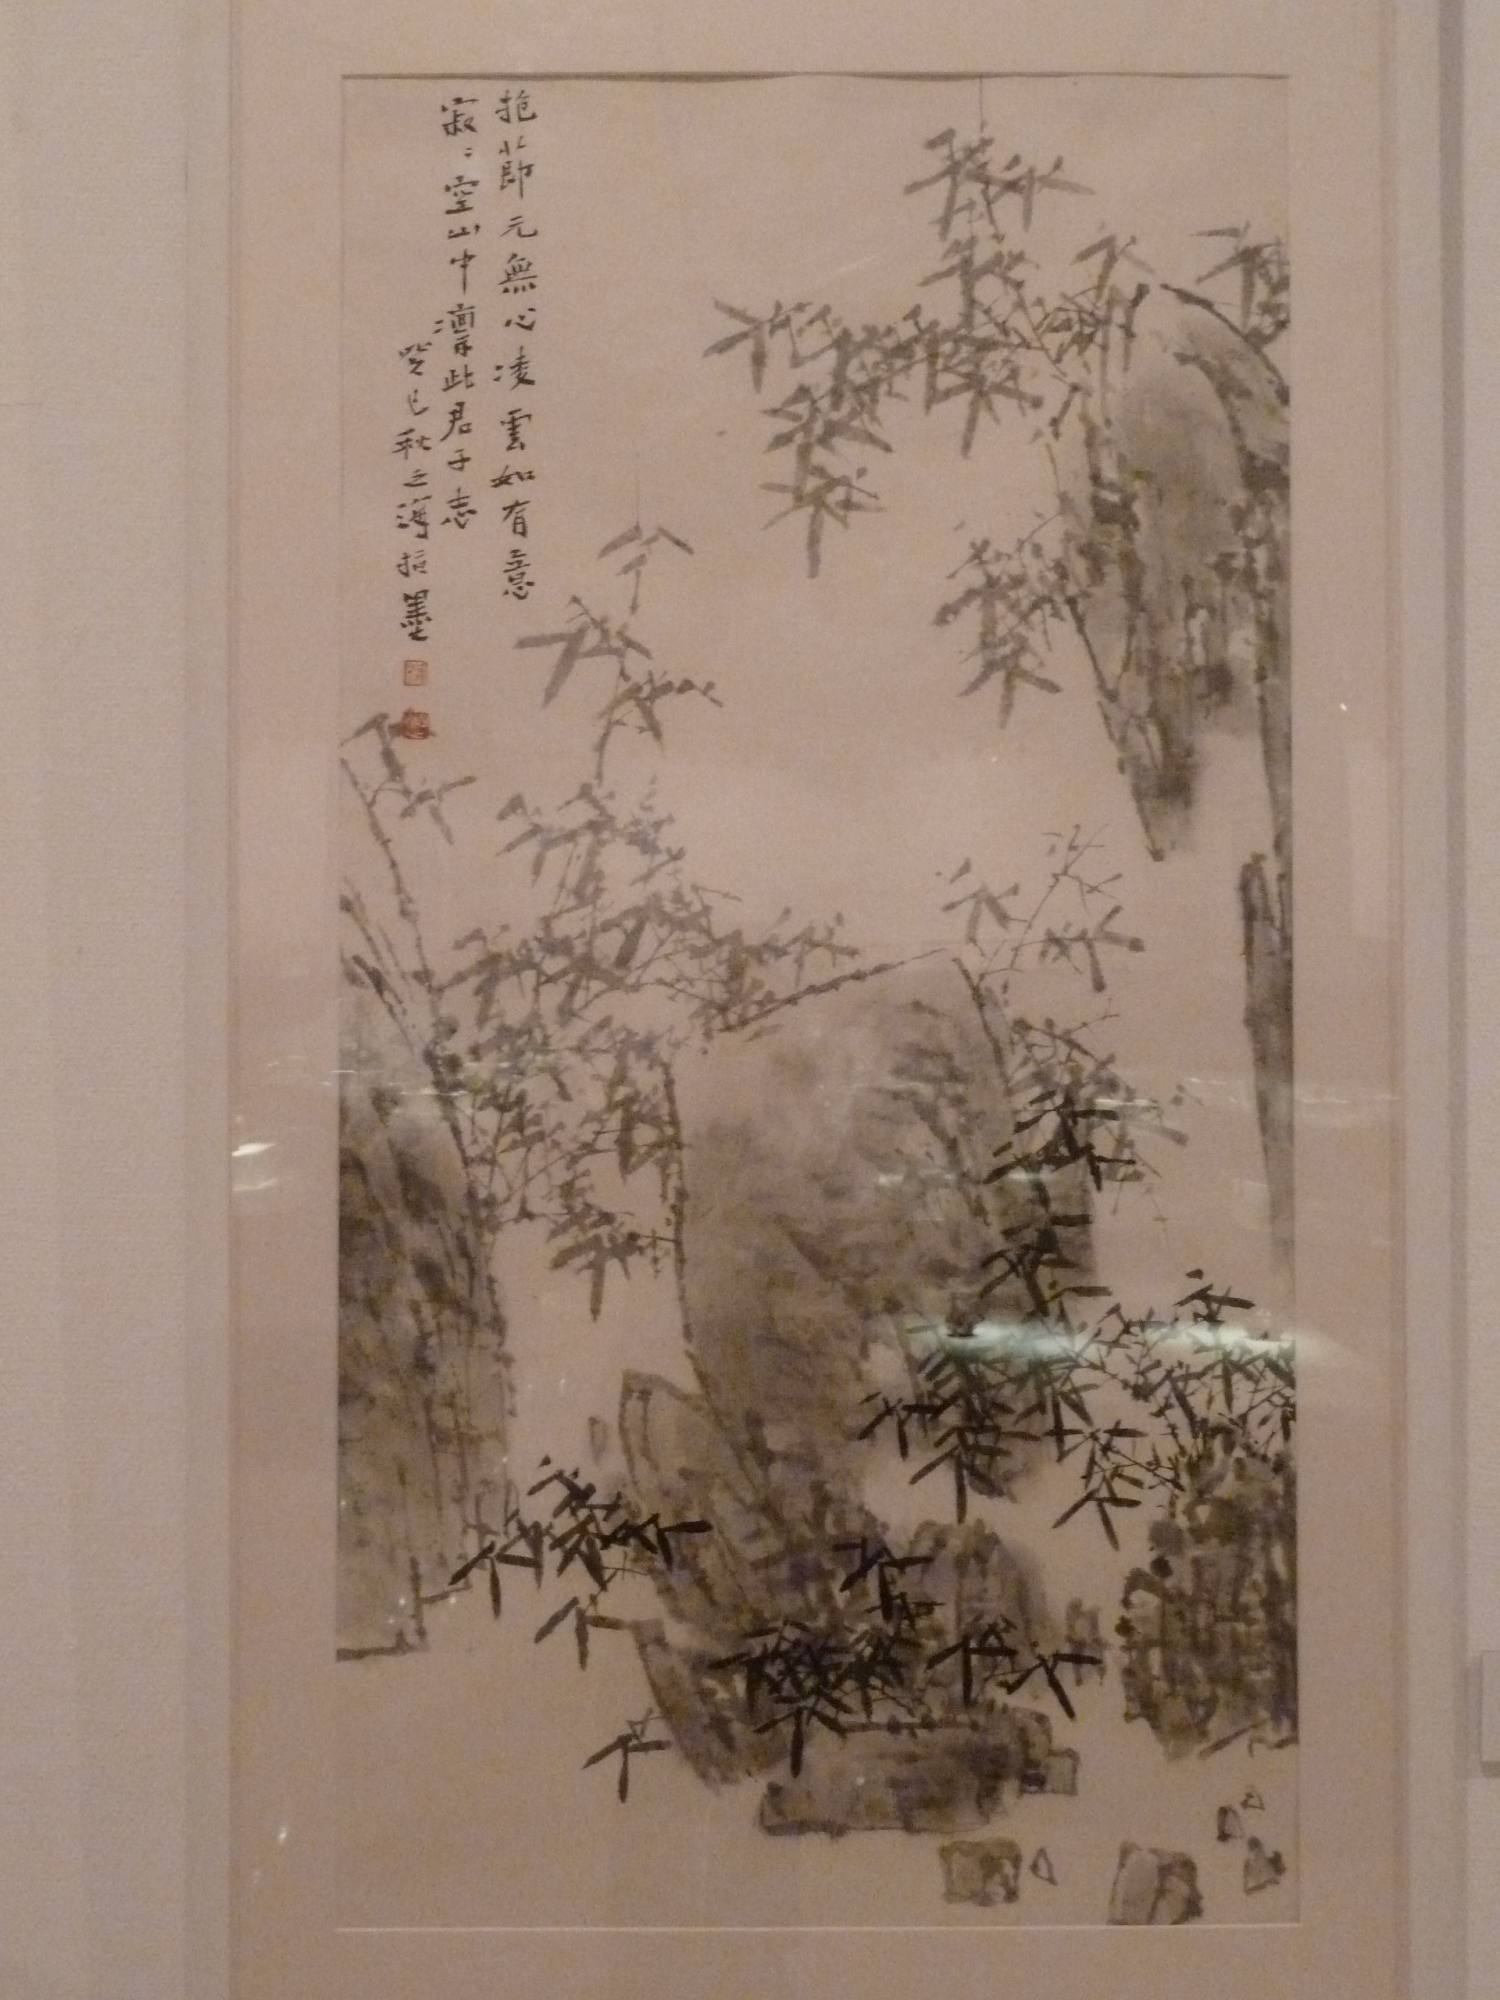 抱節元無心凌雲如有意
寂〻空山中凛此君子志
癸巳秋之海指墨